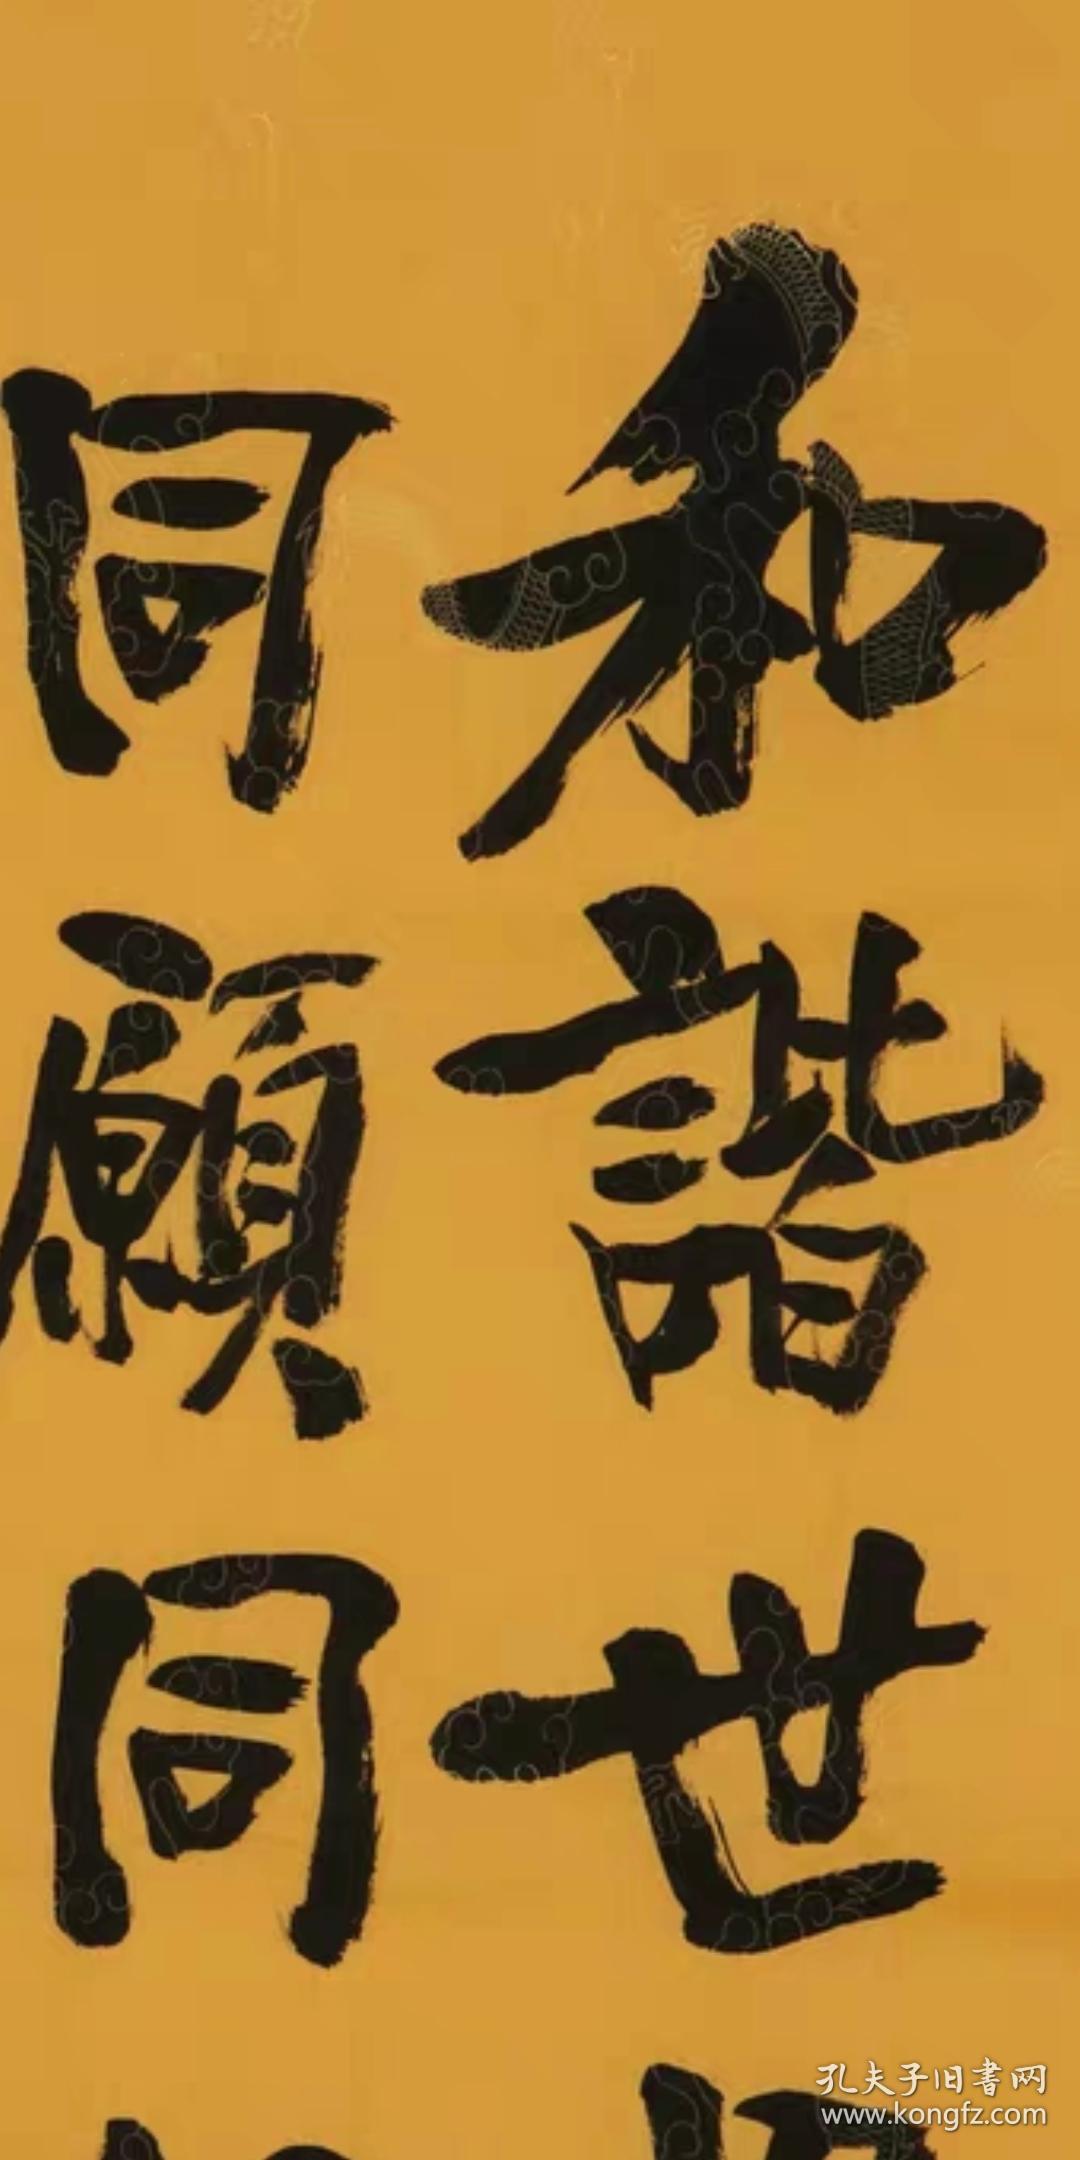 和諧世
同願同
孔夫子旧書网
www.kongfz.com